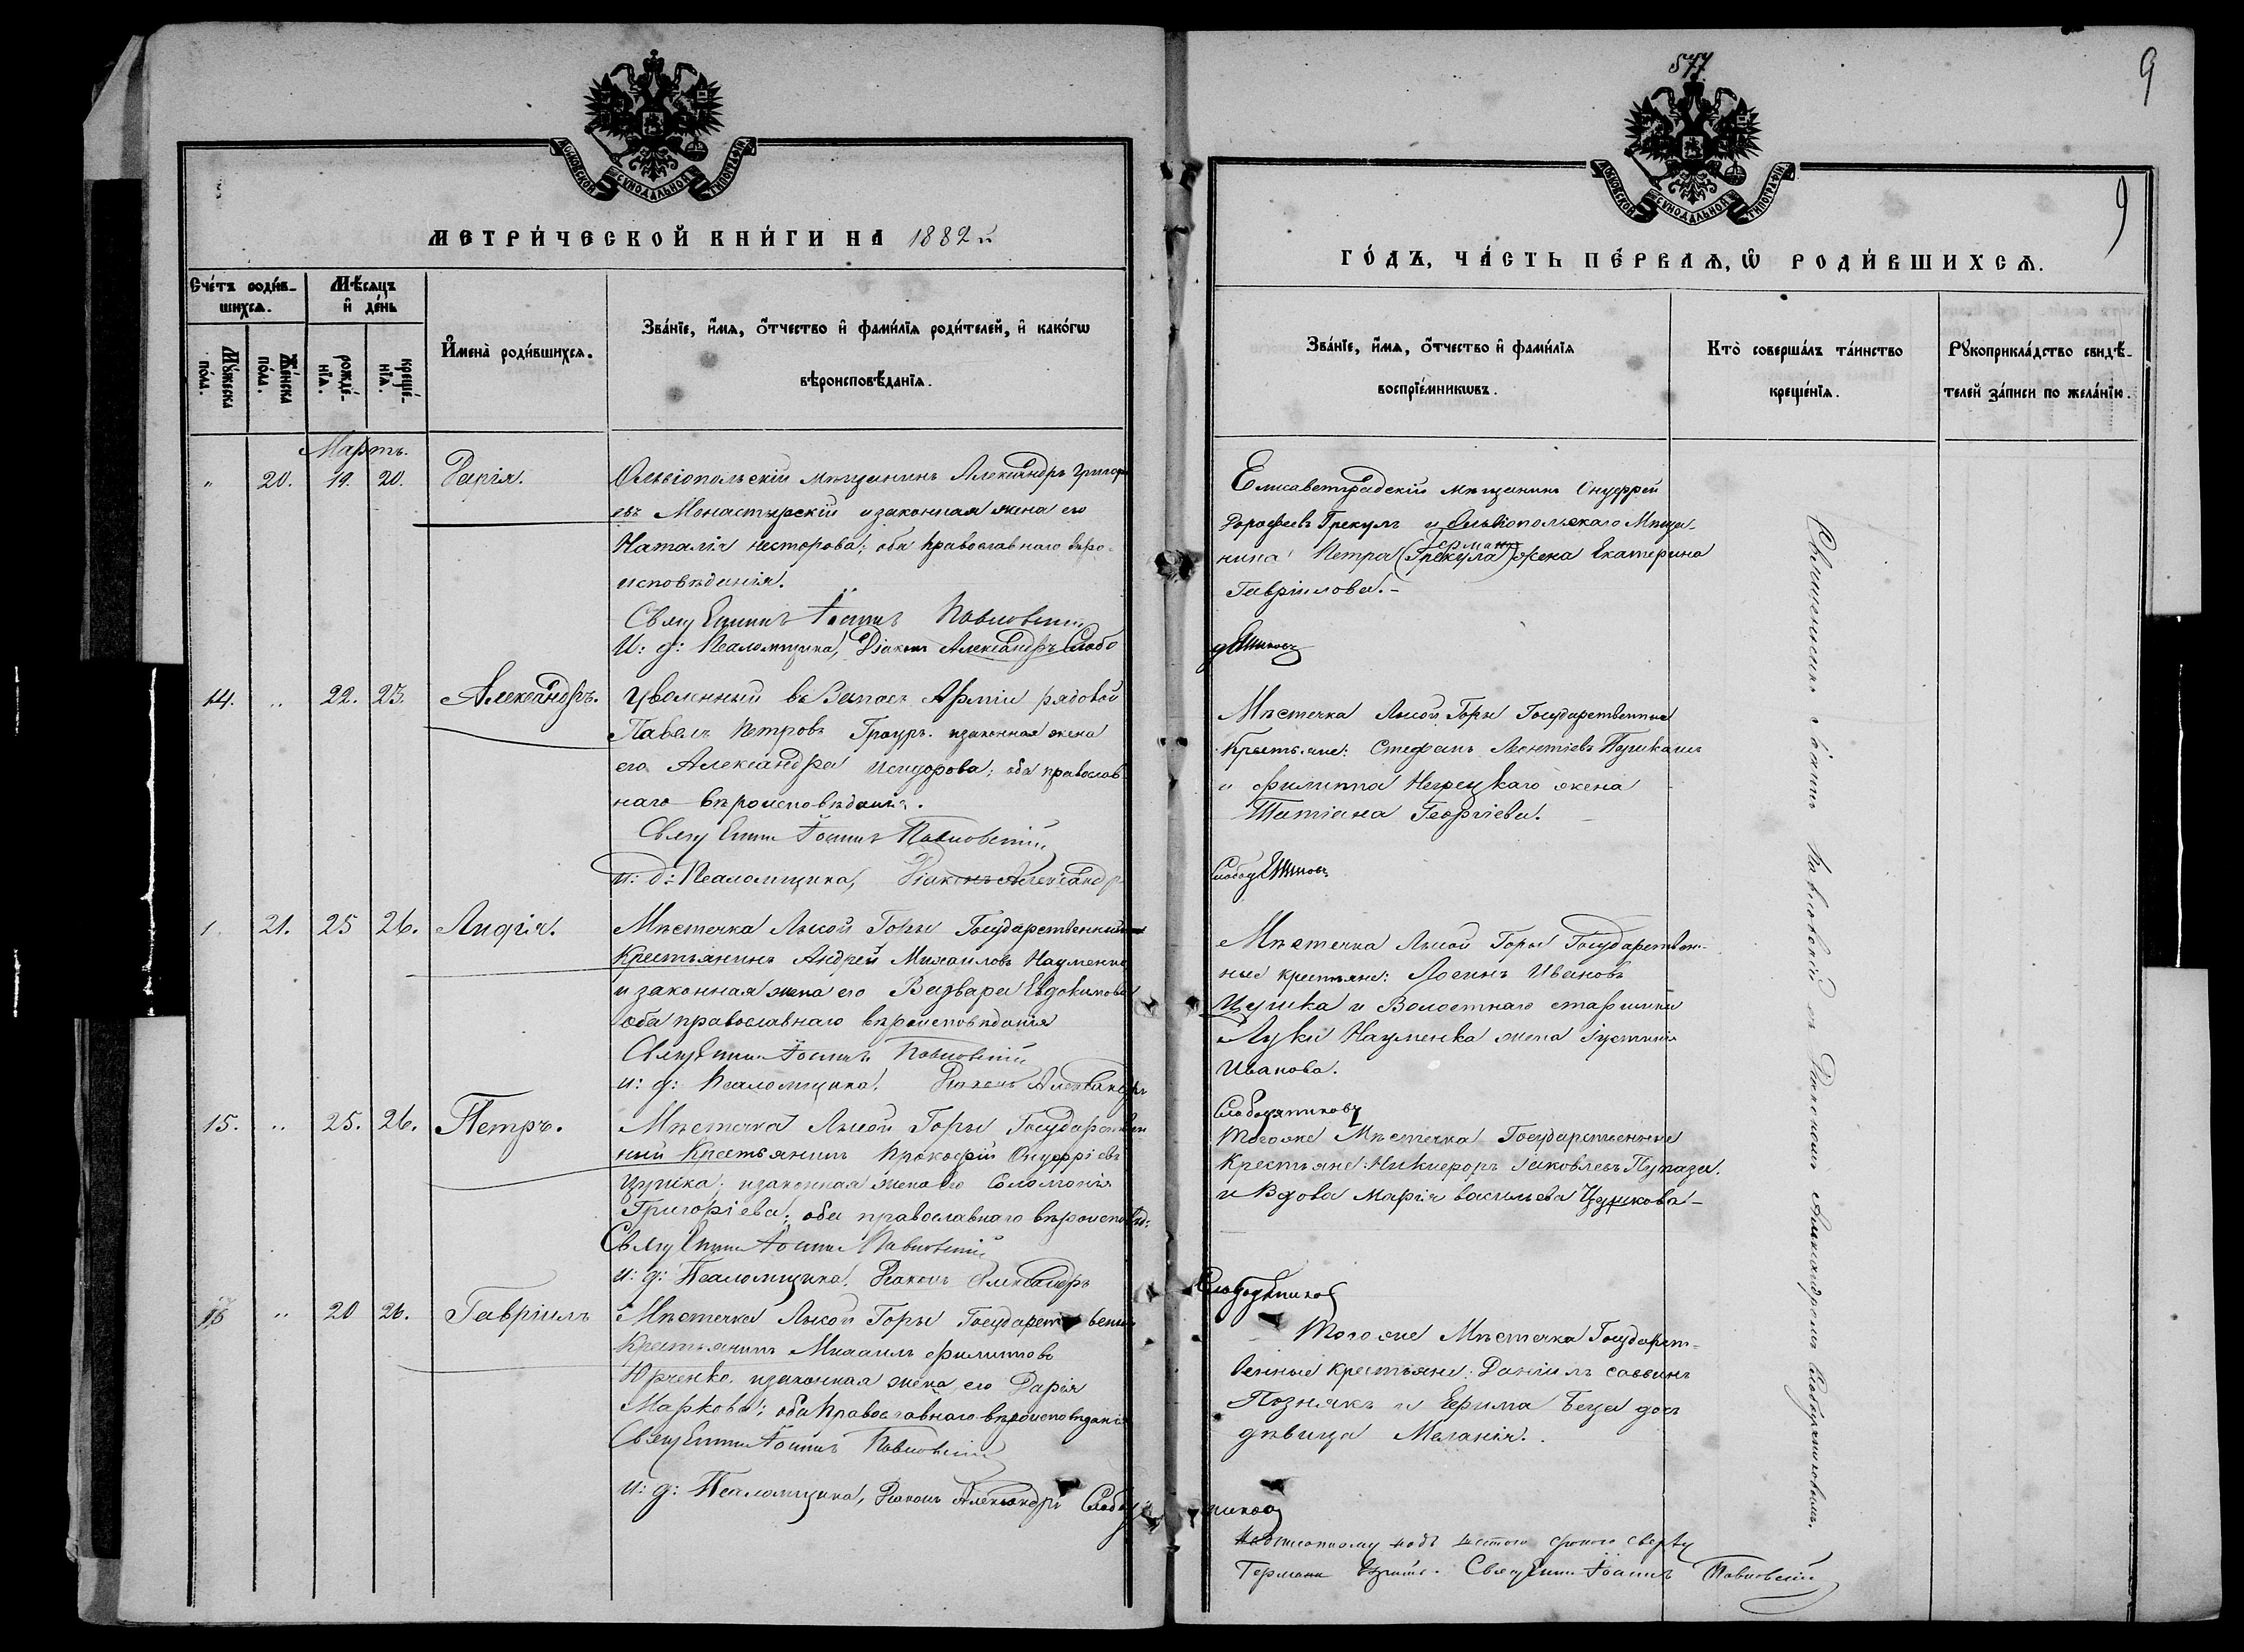 МОСКОВСКОЙ СУНОДАЛЬНОЙ ТИПОГРАФІИ
МЕТРИ́ЧЕСКОЙ КНИ́ГИ НА 1882й
Сче́тъ роди́в-
шихся.
Мѣ́сяцъ
и де́нь
Му́жеска
по́ла.
Же́нска
по́ла.
рожде́-
нїя.
креще́-
нїя.
Имена̀ роди́вшихся.
Зва́нїе, и́мя, ѻ́тчество и фами́лїя роди́телей, и како́гѡ
вѣроисповѣ́данїя.
Мартъ.
" 20. 19. 20. Дарія.
Ольвіопольскій мѣщанинъ Александръ Григорь
евъ Монастырскій и законная жена его
Наталія Несторова; оба православнаго вѣро-
исповѣданія.
Священникъ Іоаннъ Павловскій
И: д: Псаломщика, Діаконъ Александръ Слобо
14. " 22. 23. Александръ.
Уволенный въ Запасъ Арміи рядовой
Павелъ Петровъ Грауръ. и законная жена
его Александра Исидорова; оба православ
наго вѣроисповѣданія.
Священникъ Іоаннъ Павловскій
и: д: Псаломщика, Діаконъ Александръ
21. 25 26. Лидія.
Мѣстечка Лысой Горы Государственный
Крестьянинъ Андрей Михаиловъ Науменко
и законная жена его Варвара Евдокимова
оба православнаго вѣроисповѣданія
Священникъ Іоаннъ Павловскій
и: д: Псаломщика. Діаконъ Александръ
15. " 25. 26. Петръ.
Мѣстечка Лысой Горы Государствен
ный Крестьянинъ Прокофій Онуфріевъ
Цушка; и законная жена его Соломонія
Григоріева; оба православнаго вѣроисповѣд:
Священникъ Іоаннъ Павловскій
и: д: Псаломщика. Діаконъ Александръ
16 " 20 26. Гавріилъ
Мѣстечка Лысой Горы Государственный
Крестьянинъ Михаилъ Филипповъ
Юрченко. и законная жена его Дарія
Маркова; оба Православнаго вѣроисповѣданія
Священникъ Іоаннъ Павловскій
и: д: Псаломщика, Діаконъ Александръ Слободя
577
9
МОСКОВСКОЙ СУНОДАЛЬНОЙ ТИПОГРАФІИ
9
ГО́ДЪ, ЧА́СТЬ ПЕ́РВАЯ, Ѡ РОДИ́ВШИХСЯ.
Зва́нїе, и́мя, ѻ́тчество и фами́лїя
воспрїе́мникѡвъ.
Кто̀ соверша́лъ та́инство
креще́нїя.
Рꙋкоприкла́дство свидѣ́-
телей за́писи по жела́нїю.
Елисаветградскій мѣщанинъ Онуфрій
Дорофеевъ Грекулъ и Ольвіопольскаго Мѣща-
нина Петра (Грекула) Германъ жена Екатерина
Гавріилова.-
дяниковъ
Мѣстечка Лысой Горы Государственные
Крестьяне: Стефанъ Леонтіевъ
и Филиппа Негрецкаго жена
Татіана Георгіева.
Слободяниковъ
Мѣстечка Лысой Горы Государствен-
ные крестьяне: Логинъ Ивановъ
Цушка и Волостнаго старшины
Луки Науменка жена Іустинія
Иванова.
Слободяниковъ
Тогоже Мѣстечка Государственные
Крестьяне: Никифоръ Іаковлевъ Пугаза.
и Вдова Марія Васильева Цушкова-
Слободяниковъ
Тогоже Мѣстечка Государст-
венные крестьяне: Даніилъ Саввинъ
Познякъ и Ефима Беца дочь
дѣвица Меланія.
никовъ
подъ шестою сверху
Германъ вѣрить. Священникъ Іоаннъ Павловскій
Священникъ Іоаннъ Павловскій съ Діакономъ Александромъ Слободяниковымъ.